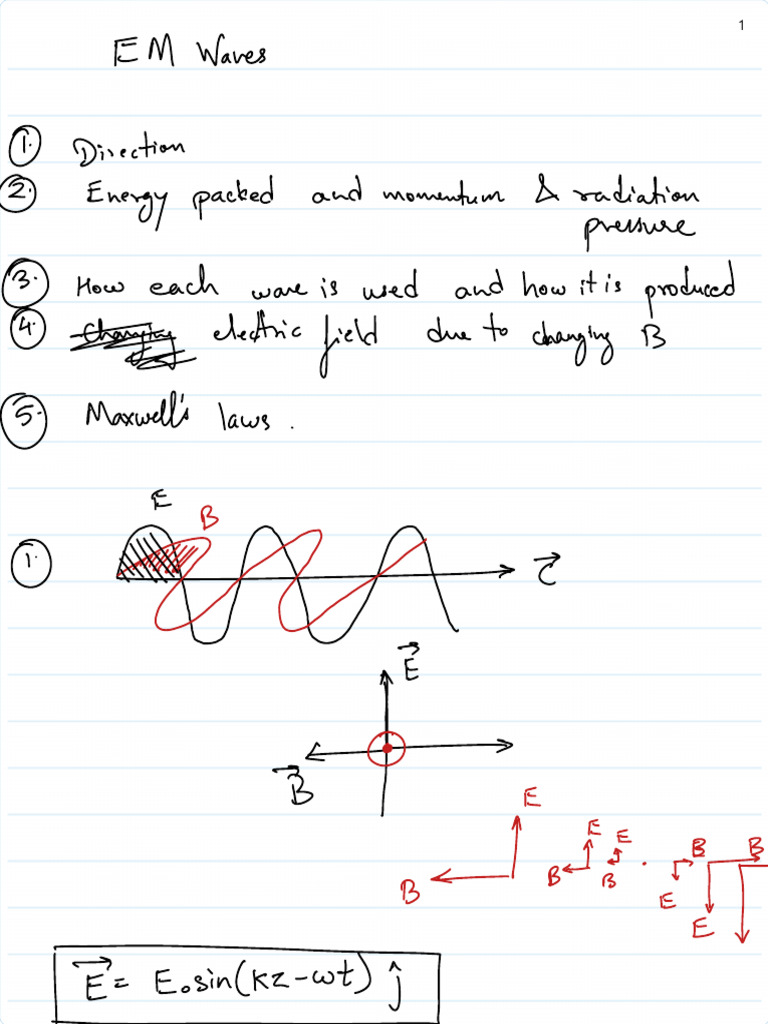 1
EM Waves
1. Direction
2. Energy packed and momentum & radiation
pressure
3. How each wave is used and how it is produced
4. electric field due to changing B
5. Maxwell's laws.
E
B
1.
C
E
B
E
B
E
B
E
B
B
E
B
E
E = E₀ sin(kz - ωt) ĵ